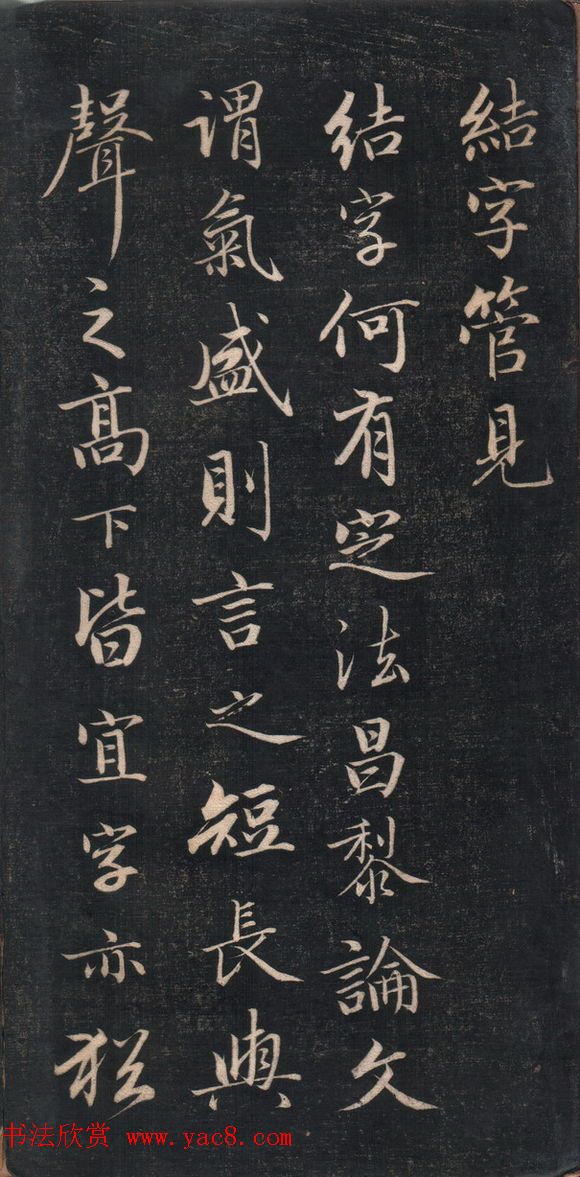 結字管見
結字何有定法昌黎論文
謂氣盛則言之短長與
聲之高下皆宜字亦猶
书法欣赏 www.yac8.com